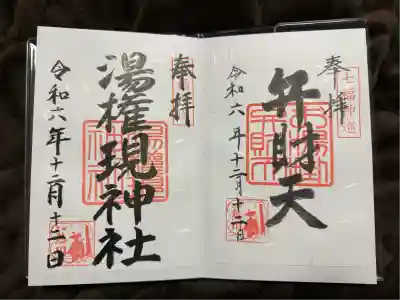 七福神巡
奉拝
弁財天
令和六年十二月十二日
奉拝
湯権現神社
令和六年十二月十二日